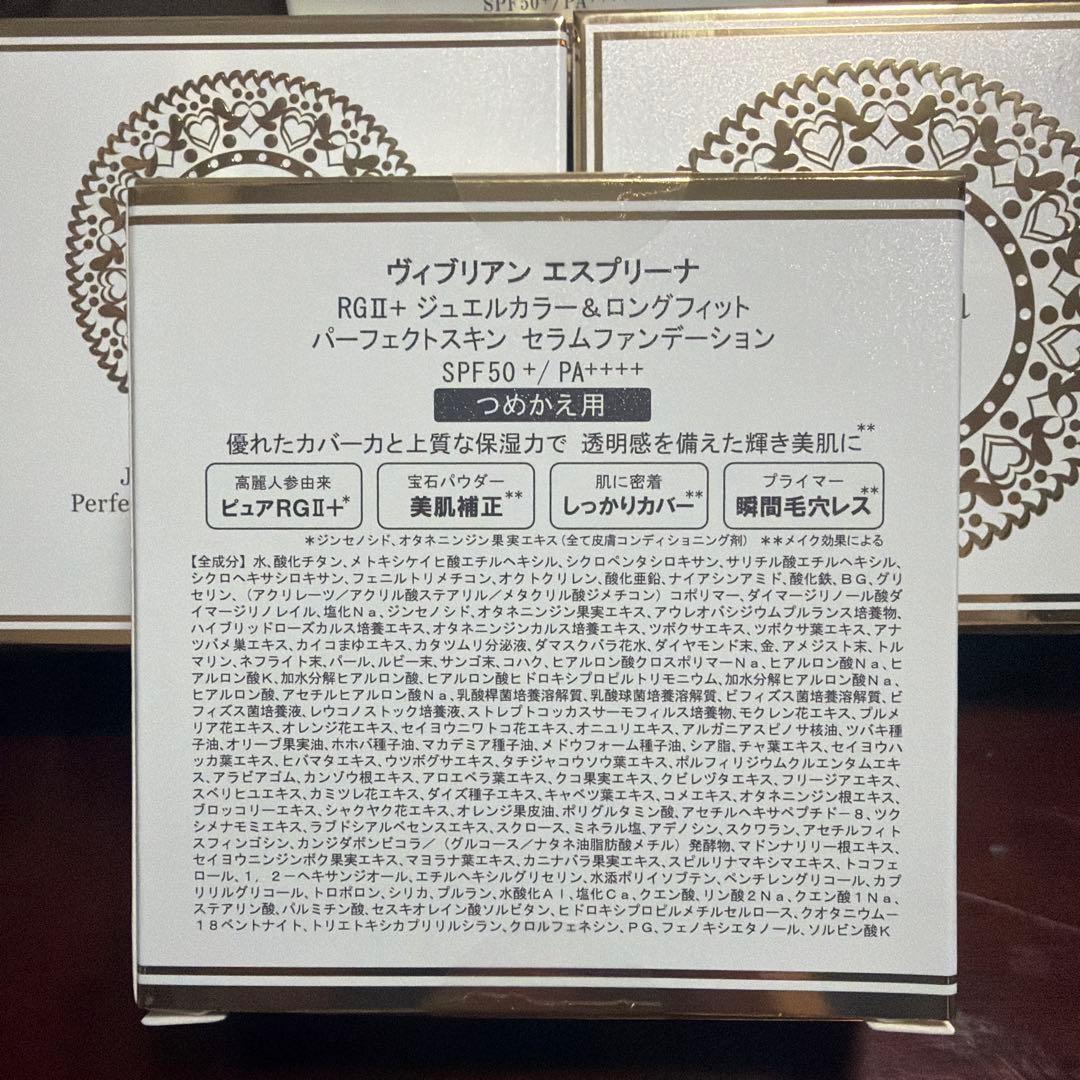 SPF50+/PA++++
Perfe
ヴィブリアン エスプリーナ
RGⅡ+ ジュエルカラー&ロングフィット
パーフェクトスキン セラムファンデーション
SPF50+/PA++++
つめかえ用
優れたカバー力と上質な保湿力で 透明感を備えた輝き美肌に**
高麗人参由来 宝石パウダー 肌に密着 プライマー
ピュアRGⅡ+* 美肌補正** しっかりカバー** 瞬間毛穴レス**
*ジンセノシド、オタネニンジン果実エキス(全て皮膚コンディショニング剤) **メイク効果による
【全成分】水、酸化チタン、メトキシケイヒ酸エチルヘキシル、シクロペンタシロキサン、サリチル酸エチルヘキシル、
シクロヘキサシロキサン、フェニルトリメチコン、オクトクリレン、酸化亜鉛、ナイアシンアミド、酸化鉄、BG、グリ
セリン、(アクリレーツ/アクリル酸ステアリル/メタクリル酸ジメチコン)コポリマー、ダイマージリノール酸ダ
イマージリノレイル、塩化Na、ジンセノシド、オタネニンジン果実エキス、アウレオバシジウムプルランス培養物、
ハイブリッドローズカルス培養エキス、オタネニンジンカルス培養エキス、ツボクサエキス、ツボクサ葉エキス、アナ
ツバメ巣エキス、カイコまゆエキス、カタツムリ分泌液、ダマスクバラ花水、ダイヤモンド末、金、アメジスト末、トル
マリン、ネフライト末、パール、ルビー末、サンゴ末、コハク、ヒアルロン酸クロスポリマーNa、ヒアルロン酸Na、ヒ
アルロン酸K、加水分解ヒアルロン酸、ヒアルロン酸ヒドロキシプロピルトリモニウム、加水分解ヒアルロン酸Na、
ヒアルロン酸、アセチルヒアルロン酸Na、乳酸桿菌培養溶解質、乳酸球菌培養溶解質、ビフィズス菌培養溶解質、ビ
フィズス菌培養液、レウコノストック培養液、ストレプトコッカスサーモフィルス培養物、モクレン花エキス、プルメ
リア花エキス、オレンジ花エキス、セイヨウニワトコ花エキス、オニユリエキス、アルガニアスピノサ核油、ツバキ種
子油、オリーブ果実油、ホホバ種子油、マカデミア種子油、メドウフォーム種子油、シア脂、チャ葉エキス、セイヨウハ
ッカ葉エキス、ヒバマタエキス、ウツボグサエキス、タチジャコウソウ葉エキス、ポルフィリジウムクルエンタムエキ
ス、アラビアゴム、カンゾウ根エキス、アロエベラ葉エキス、クコ果実エキス、クビレヅタエキス、フリージアエキス、
スベリヒユエキス、カミツレ花エキス、ダイズ種子エキス、キャベツ葉エキス、コメエキス、オタネニンジン根エキス、
ブロッコリーエキス、シャクヤク花エキス、オレンジ果皮油、ポリグルタミン酸、アセチルヘキサペプチド-8、ツク
シメナモミエキス、ラブドシアルベセンスエキス、スクロース、ミネラル塩、アデノシン、スクワラン、アセチルフィト
スフィンゴシン、カンジダボンビコラ/(グルコース/ナタネ油脂肪酸メチル)発酵物、マドンナリリー根エキス、
セイヨウニンジンボク果実エキス、マヨラナ葉エキス、カニナバラ果実エキス、スピルリナマキシマエキス、トコフェ
ロール、1,2-ヘキサンジオール、エチルヘキシルグリセリン、水添ポリイソブテン、ペンチレングリコール、カプ
リリルグリコール、トロポロン、シリカ、プルラン、水酸化Al、塩化Ca、クエン酸、リン酸2Na、クエン酸1Na、
ステアリン酸、パルミチン酸、セスキオレイン酸ソルビタン、ヒドロキシプロピルメチルセルロース、クオタニウム-
18ベントナイト、トリエトキシカプリリルシラン、クロルフェネシン、PG、フェノキシエタノール、ソルビン酸K